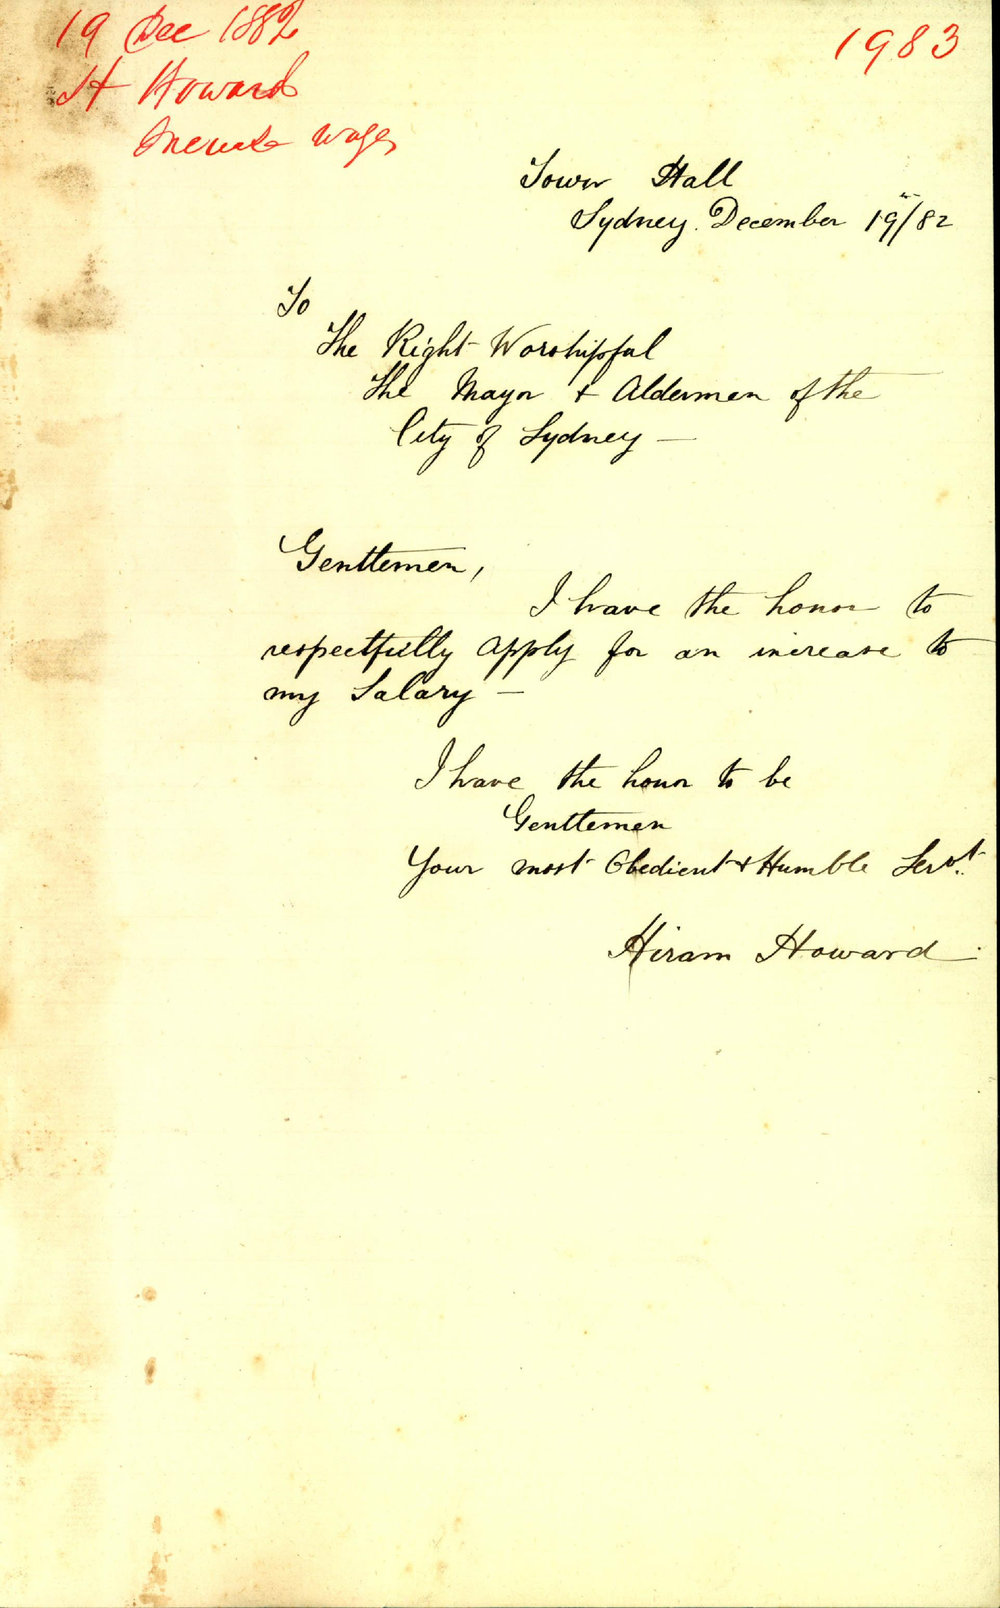 19 Dec 1882
H Howard
Increase wages
1983
Town Hall
Sydney. December 19/82
To
The Right Worshipful
The Mayor & Aldermen of the
City of Sydney —
Gentlemen,
I have the honor to
respectfully apply for an increase to
my Salary —
I have the honor to be
Gentlemen
Your most Obedient & Humble Servt.
Hiram Howard